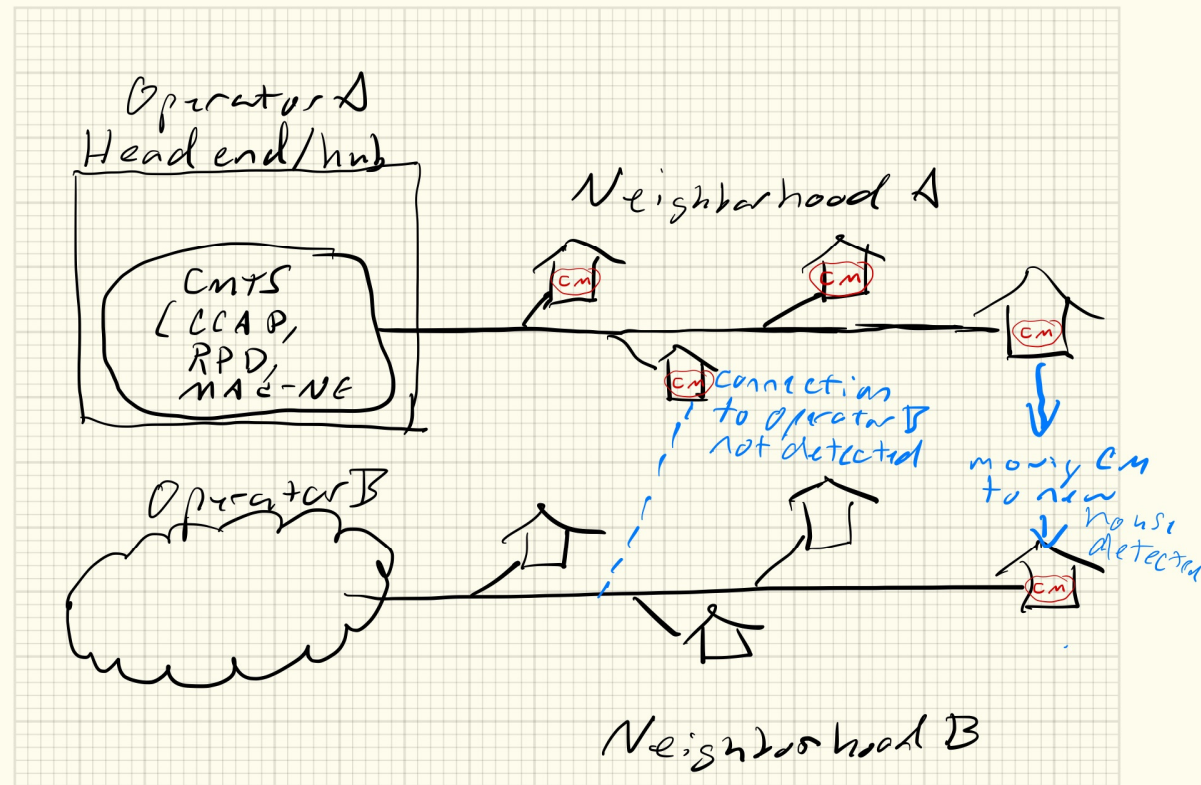 Operator A
Head end/hub
CMTS
(CCAP,
RPD,
MAC-NE
Neighborhood A
CM
CM
CM
CM
Connection
to operator B
not detected
moving CM
to new
house
detected
Operator B
CM
Neighborhood B